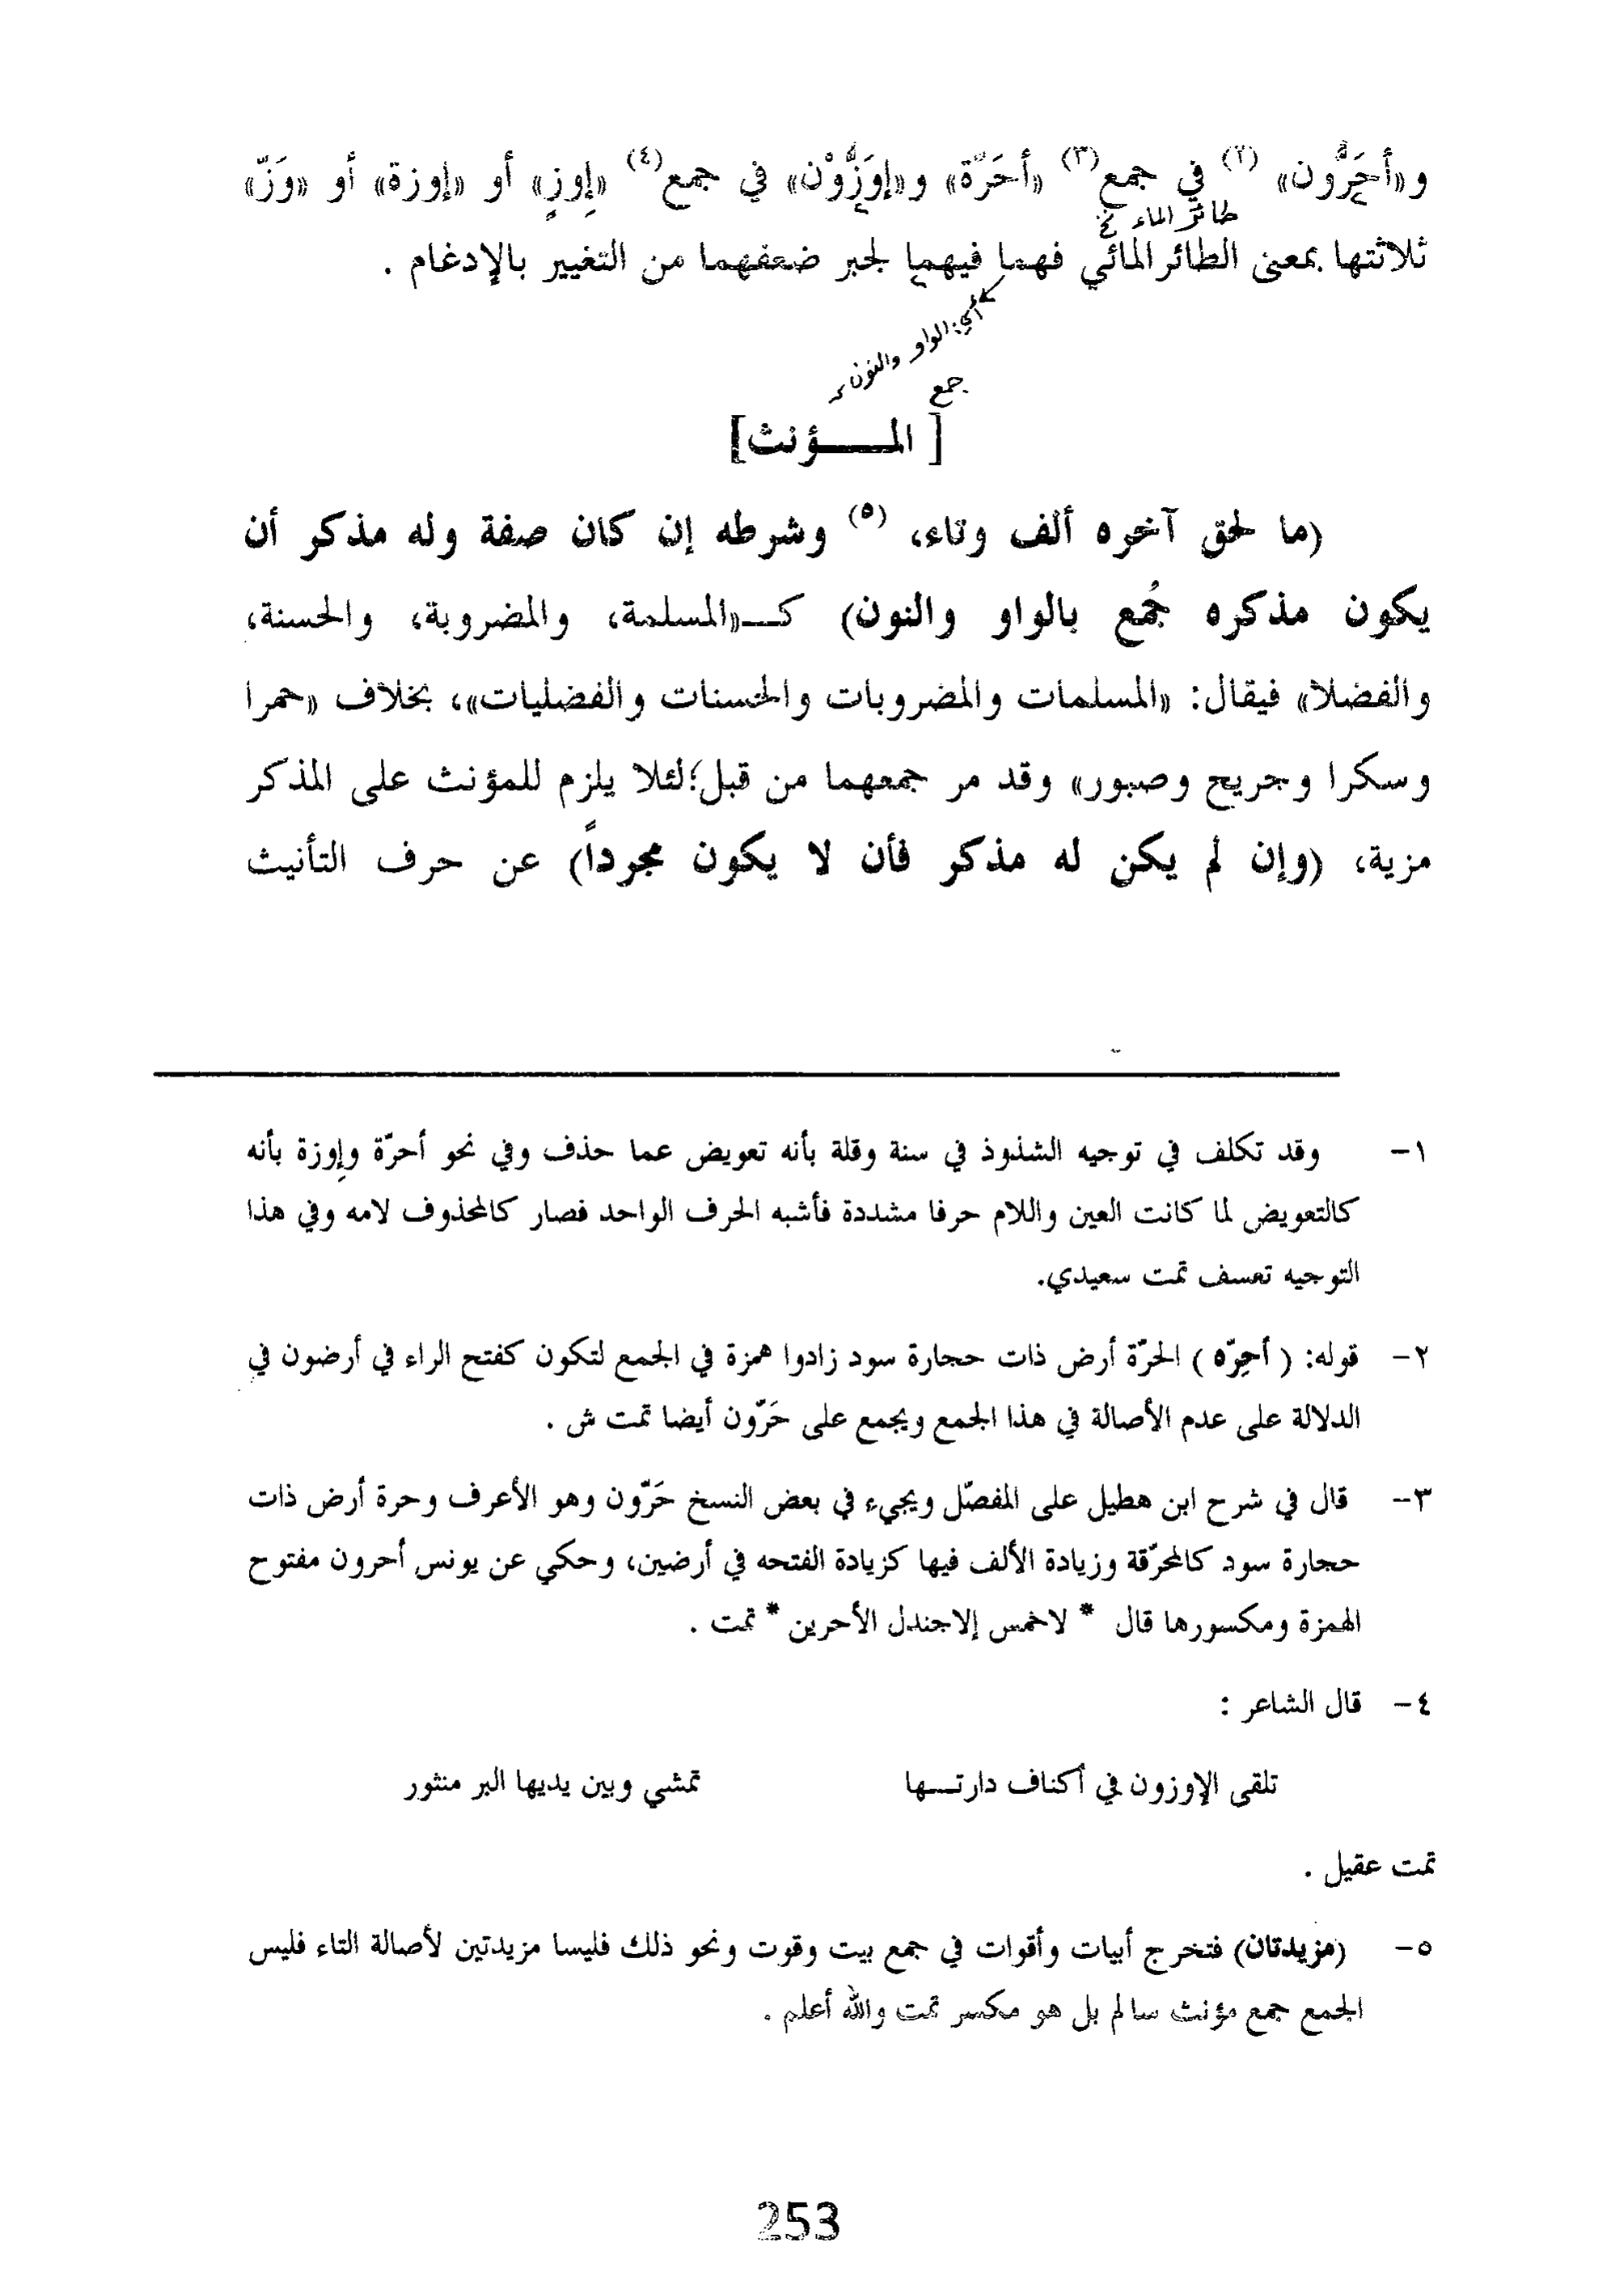 و«أَحَرُّون» (٢) في جمع (٣) «أحَرّة» و«إوَزُّوْن» في جمع (٤) «إوز» أو «إوزة» أو «وَزّ»
طائر الماء
ثلاثتها بمعنى الطائر المائي فهما فيهما لجبر ضعفهما من التغيير بالإدغام .
أي: الواو والنون
جمع
[ المـــؤنث]
(ما لحق آخره ألف وتاء، (٥) وشرطه إن كان صفة وله مذكر أن
يكون مذكره جُمع بالواو والنون) كـ«المسلمة، والمضروبة، والحسنة،
والفضلا» فيقال: «المسلمات والمضروبات والحسنات والفضليات»، بخلاف «حمرا
وسكرا وجريح وصبور» وقد مر جمعهما من قبل؛ لئلا يلزم للمؤنث على المذكر
مزية، (وإن لم يكن له مذكر فأن لا يكون مجرداً) عن حرف التأنيث
١- وقد تكلف في توجيه الشذوذ في سنة وقلة بأنه تعويض عما حذف وفي نحو أحرّة وإوزة بأنه
كالتعويض لما كانت العين واللام حرفا مشددة فأشبه الحرف الواحد فصار كالمحذوف لامه وفي هذا
التوجيه تعسف تمت سعيدي.
٢- قوله: ( أحِرّه ) الحرّة أرض ذات حجارة سود زادوا همزة في الجمع لتكون كفتح الراء في أرضون في
الدلالة على عدم الأصالة في هذا الجمع ويجمع على حَرّون أيضا تمت ش .
٣- قال في شرح ابن هطيل على المفصّل ويجيء في بعض النسخ حَرّون وهو الأعرف وحرة أرض ذات
حجارة سود كالمحرّقة وزيادة الألف فيها كزيادة الفتحه في أرضين، وحكي عن يونس أحرون مفتوح
الهمزة ومكسورها قال * لاخمس إلاجندل الأحرين * تمت .
٤- قال الشاعر :
تلقى الإوزون في أكناف دارتـــها تمشي وبين يديها البر منثور
تمت عقيل .
٥- (مزيدتان) فتخرج أبيات وأقوات في جمع بيت وقوت ونحو ذلك فليسا مزيدتين لأصالة التاء فليس
الجمع جمع مؤنث سالم بل هو مكسر تمت والله أعلم .
253